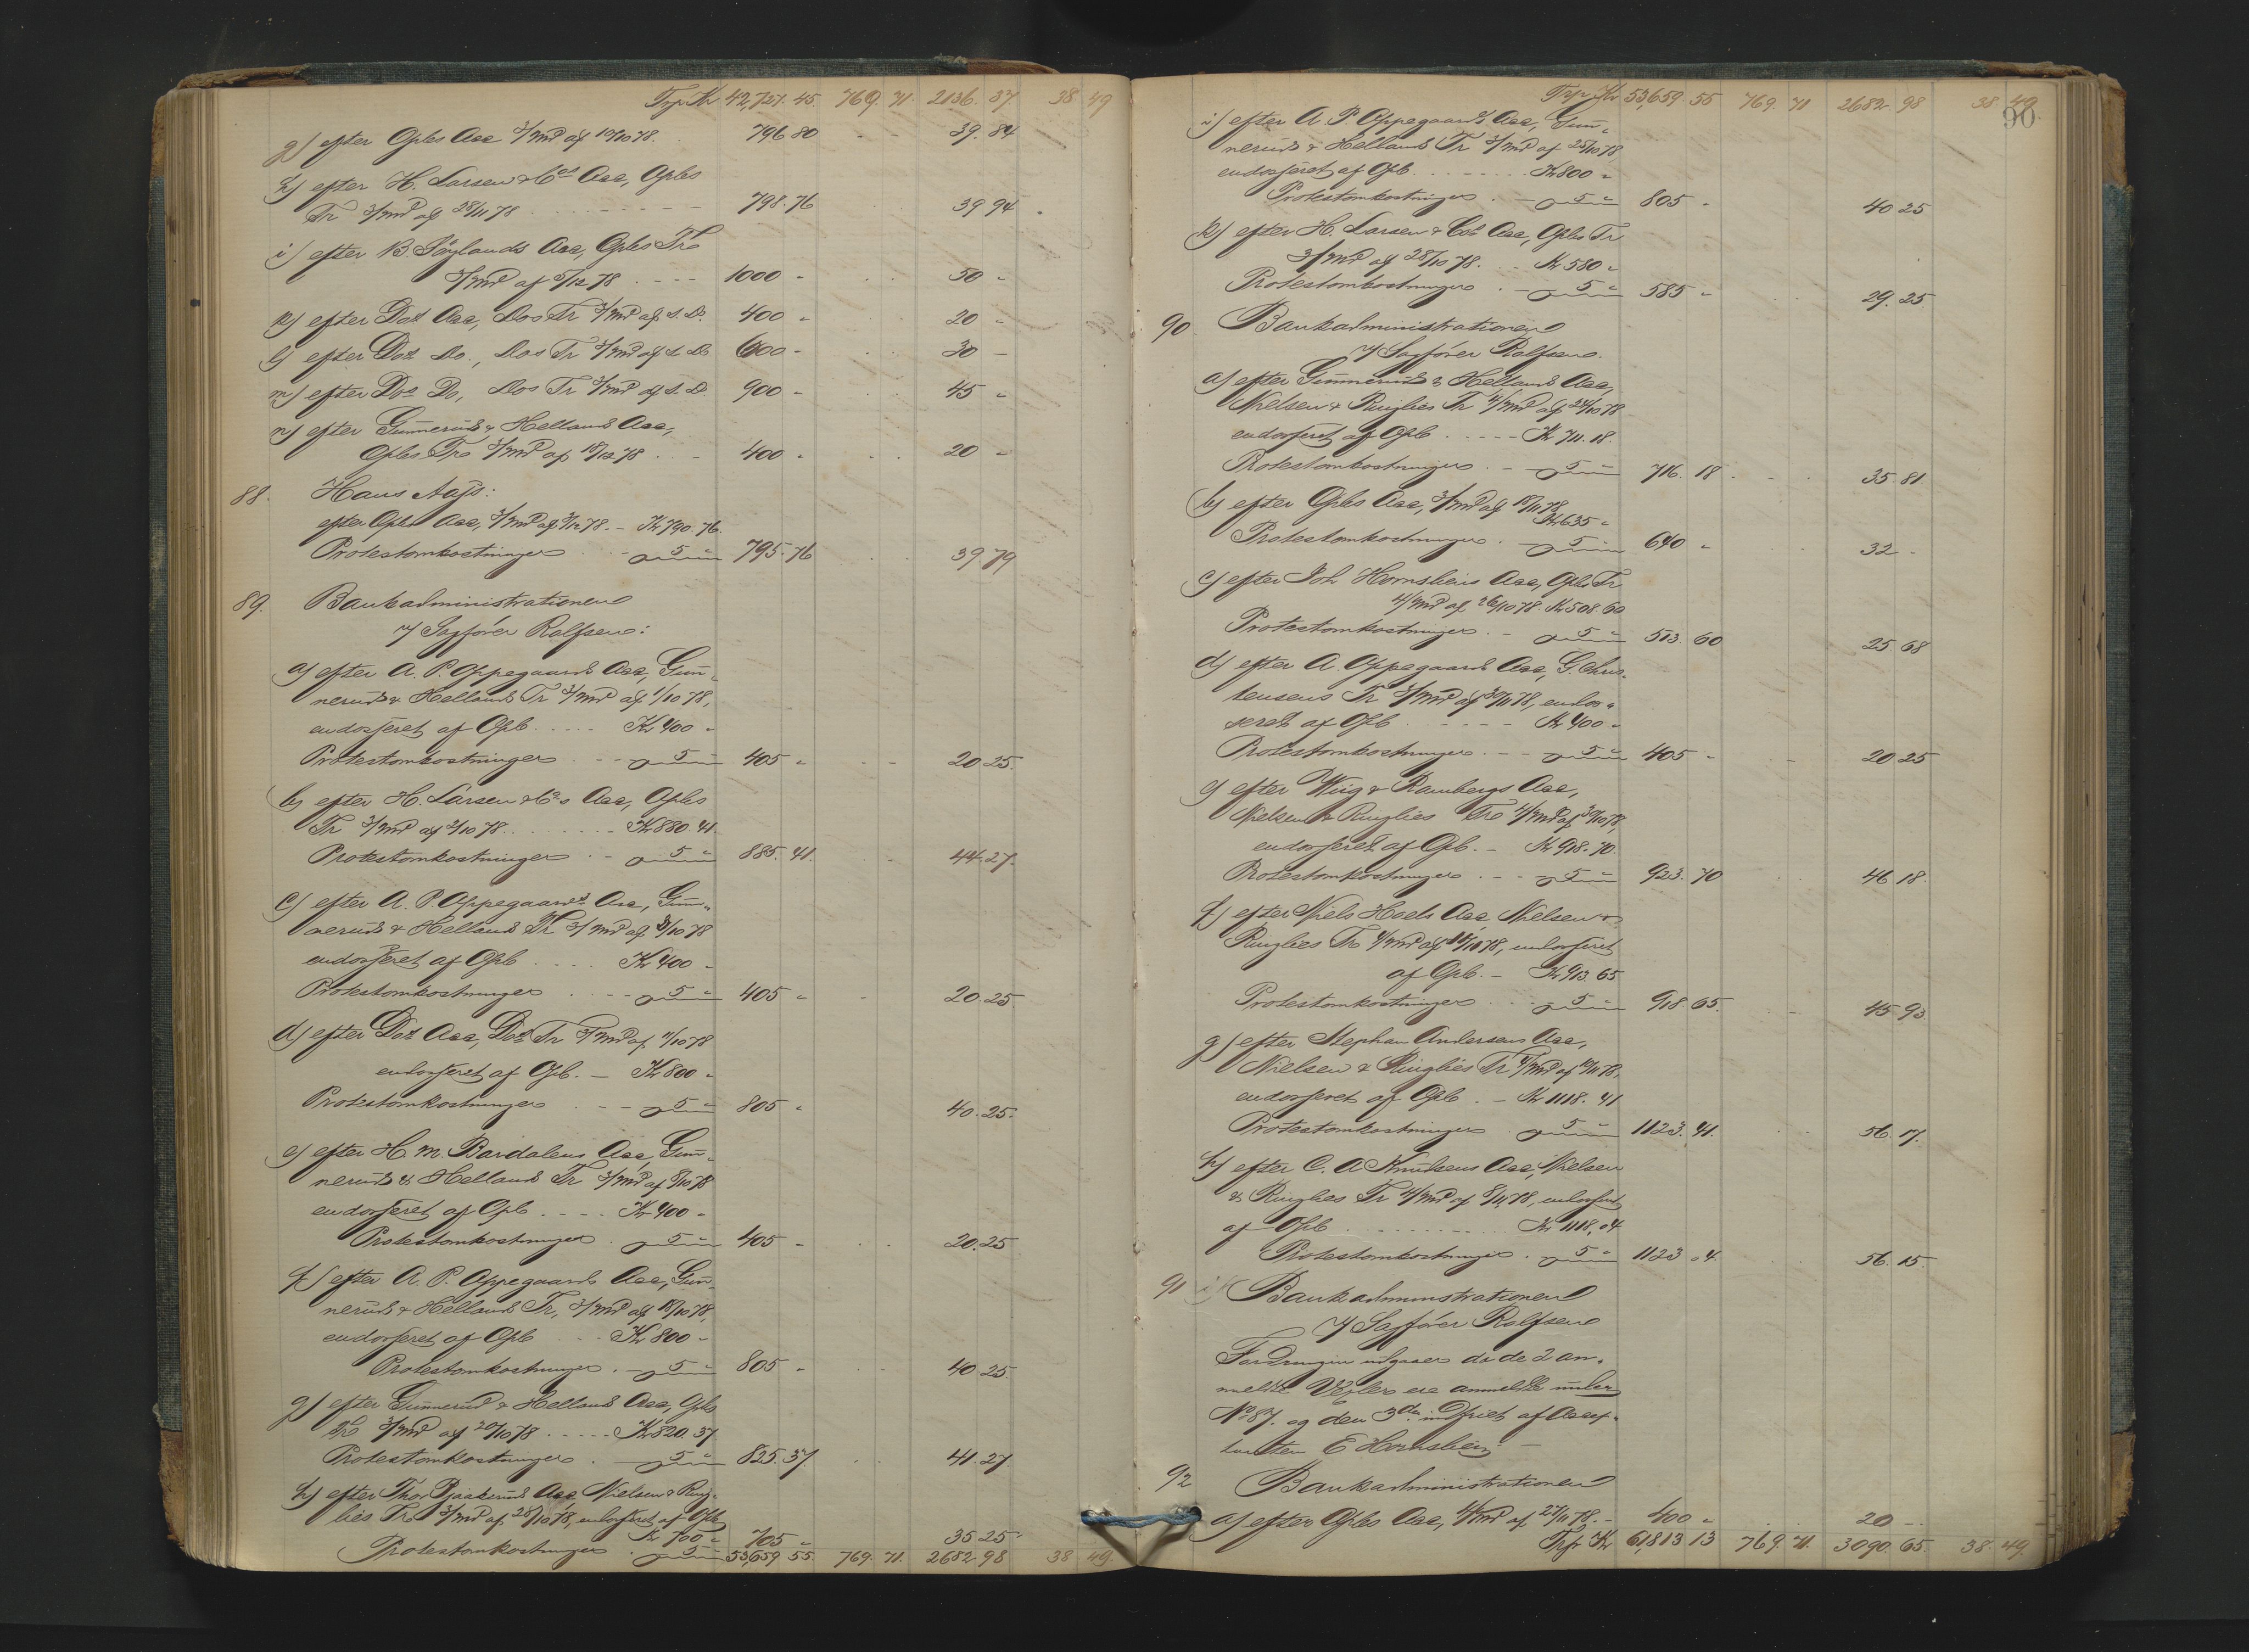 Trpr. Kr 42,727. 45. 769. 71. 2136. 37. 38 49
g) efter Opbs Acc 3/md af 10/10 78. 796 80 - - 39. 84
h) efter H. Larsen & Coes Acc, Opbs
Tr 3/md af 28/11 78 798. 76 39 94
i) efter B. Föylands Acc, Opbs Tr
3/md af 5/12 78 1000 - 50 -
k) efter Dos Acc, Dos Tr 3/md af s. D. 400 - 20 -
l) efter Dos Do., Dos Tr 3/md af s. D 600 - 30 -
m) efter Dos Do, Dos Tr 3/md af s. D 900 - 45 -
n) efter Gunneruds & Hellands Acc,
Opbs Tr 3/md af 18/12 78 400 - 20 -
88. Hans Aass:
efter Opbs Acc, 3/md af 3/12 78. - Kr 790. 76.
Protestomkostninger - 5 " 795. 76 39 79
89. Bankadministrationen
v/ Sagfører Rolfsen:
a) efter A. P. Oppegaards Acc, Gun-
neruds & Hellands Tr 3/md af 1/10 78,
endosseret af Opb Kr 400 -
Protestomkostninger - 5 " 405 - 20 25.
b) efter H. Larsen & Co's Acc, Opbs
Tr 3/md af 2/10 78 Kr 880. 41.
Protestomkostninger - 5 " 885. 41. 44. 27.
c) efter A. P. Oppegaards Acc, Gun-
neruds & Hellands Tr 3/md af 3/10 78
endosseret af Opb Kr 400 -
Protestomkostninger - 5 " 405 - 20. 25.
d) efter Dos Acc, Dos Tr 3/md af 11/10 78
endosseret af Opb. - Kr 800 -
Protestomkostninger - 5 " 805 - 40. 25.
e) efter H. M. Bardalens Acc, Gun-
neruds & Hellands Tr 3/md af 8/10 78
endosseret af Opb Kr 400 -
Protestomkostninger - 5 " 405 - 20. 25
f) efter A. P. Oppegaards Acc, Gun-
neruds & Hellands Tr, 3/md af 18/10 78,
endosseret af Opb Kr 800 -
Protestomkostninger - 5 " 805 - 40. 25.
g) efter Gunnerud & Hellands Acc, Opbs
Tr 3/md af 20/10 78 Kr 820. 37
Protestomkostninger - 5 " 825. 37. 41. 27.
h) efter Thor Acc Nielsen & Ring-
lies Tr 3/md af 28/10 78, endosseret af Opb
Kr 700 - 705 - 35 25
Protestomkostninger 5 " 53,659 55. 769. 71. 2682. 98 38 49.
Trpr. Kr 53,659. 55 769. 71 2682. 98 38. 49
90.
i) efter A. P. Oppegaards Acc, Gun-
neruds & Hellands Tr 3/md af 25/10 78,
endosseret af Opb. Kr 800 -
Protestomkostninger - 5 " 805 - 40 25
k) efter H. Larsen & Cos Acc, Opbs Tr
3/md af 28/10 78. Kr 580 -
Protestomkostninger - 5 " 585 - 29. 25
90 Bankadministrationen
v/ Sagfører Rolfsen.
a) efter Gunneruds & Hellands Acc,
Nielsen & Ringlies Tr 4/md af 24/10 78
endosseret af Opb Kr 711. 18.
Protestomkostninger - 5 " 716. 18 35 81
b) efter Opbs Acc, 3/md af 18/11 78,
Kr 635 -
Protestomkostninger - 5 " 640 - 32 -
c) efter Joh Hornsleins Acc, Opbs Tr
4/md af 26/10 78. Kr 508. 60
Protestomkostninger - 5 " 513. 60 25 68
d) efter A. Oppegaards Acc, G. Chris-
tensens Tr 3/md af 30/11 78, endos-
seret af Opb Kr 400 -
Protestomkostninger - 5 " 405 - 20 25
e) efter Wiig & Rambergs Acc,
Nielsen & Ringlies Tr 4/md af 30/10 78,
endosseret af Opb. - Kr 918. 70.
Protestomkostninger - 5 " 923. 70 46 18.
f) efter Niels Hoels Acc, Nielsen &
Ringlies Tr 4/md af 78, endosseret
af Opb. - Kr 913. 65
Protestomkostninger 5 " 918. 65. 45 93
g) efter Stephan Andersens Acc,
Nielsen & Ringlies Tr 4/md af 10/11 78,
endosseret af Opb. - Kr 1118. 41
Protestomkostninger 5 " 1123. 41. 56. 17.
h) efter C. A Knudsens Acc, Nielsen
& Ringlies Tr 4/md af 8/11 78, endosseret
af Opb Kr 1118, 04
Protestomkostninger 5 " 1123 04. 56. 15.
91 Bankadministrationen
v/ Sagfører Rolfsen
Fordringen udgaaer da de 2 an-
meldte Vexler ere anmeldte under
No 87. og den 3die indfriet af Accep-
tanten E Hornslein. -
92 Bankadministrationen
a) efter Opbs Acc, 4/md af 27/11 78. - 400 - 20 -
Trpr Kr 61,813 13 769. 71. 3090. 65. 38. 49.